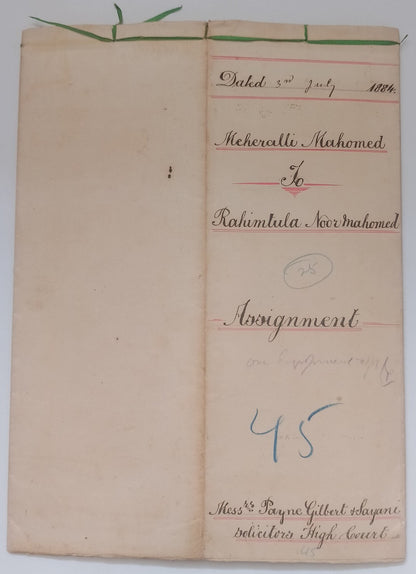 Dated 3rd July 1884.
Meheralli Mahomed
To
Rahimtula Noor Mahomed
25
Assignment
45
Messrs Payne Gilbert & Sayani
Solicitors High Court
45